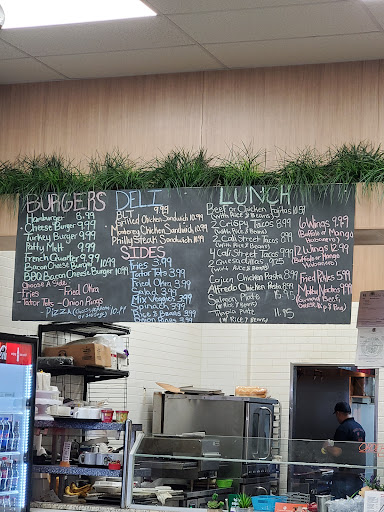 BURGERS
Hamburger 8.99
Cheese Burger 9.99
Turkey Burger 9.99
Patty Melt 9.99
French Quarter 9.99
Bacon Cheese Burger 10.99
BBQ Bacon Cheese Burger 10.99
Choose A Side
Fries Fried Okra
Tator Tots - Onion Rings
PIZZA 10.99
DELI
BLT 9.99
Grilled Chicken Sandwich 10.99
Monterey Chicken Sandwich 10.99
Philly Steak Sandwich 10.99
SIDES
Fries 3.99
Tator Tots 3.99
Fried Okra 3.99
Salad 3.99
Mix Veggies 3.99
Spinach 3.99
Rice & Beans 3.99
Onion Rings 3.99
LUNCH
Beef or Chicken Fajitas 10.59
(With Rice & Beans)
2 Crispy Tacos 8.99
(With Rice & Beans)
2 Cali Street Tacos 8.99
(With Rice & Beans)
4 Cali Street Tacos
2 Chalupas 9.99
(With Rice & Beans)
Cajun Chicken Pasta 8.99
Alfredo Chicken Pasta 8.99
Salmon Plate
(w/ Rice & Beans)
Tilapia Plate
(w/ Rice & Beans)
6 Wings 9.99
(Buffalo or Mango
Habanero)
12 Wings 12.99
(Buffalo or Mango
Habanero)
Fried Pies 5.99